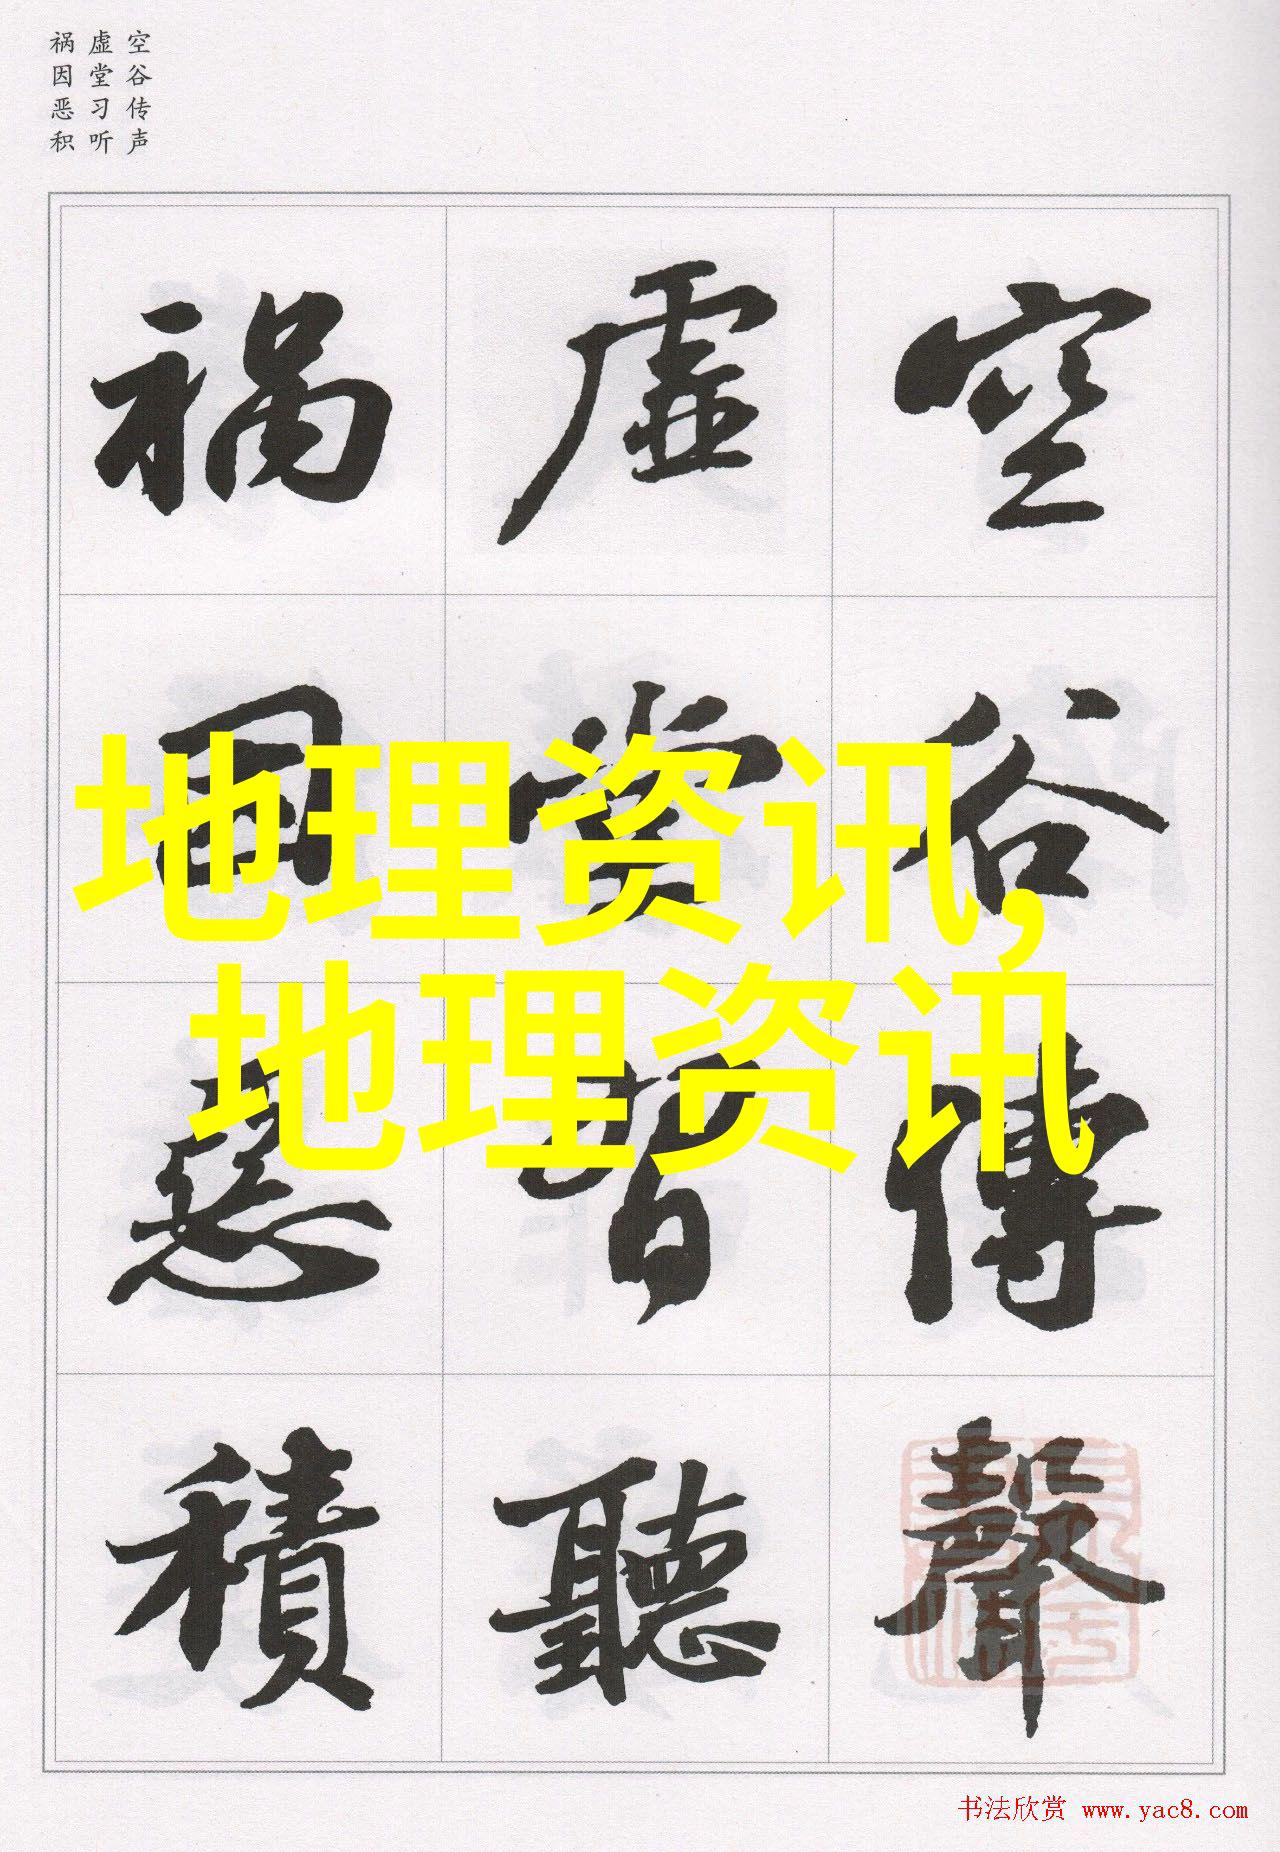 空谷传声
虚堂习听
祸因恶积
空谷傳聲
虚堂習聽
禍因惡積
地理资讯,
地理资讯
书法欣赏 www.yac8.com